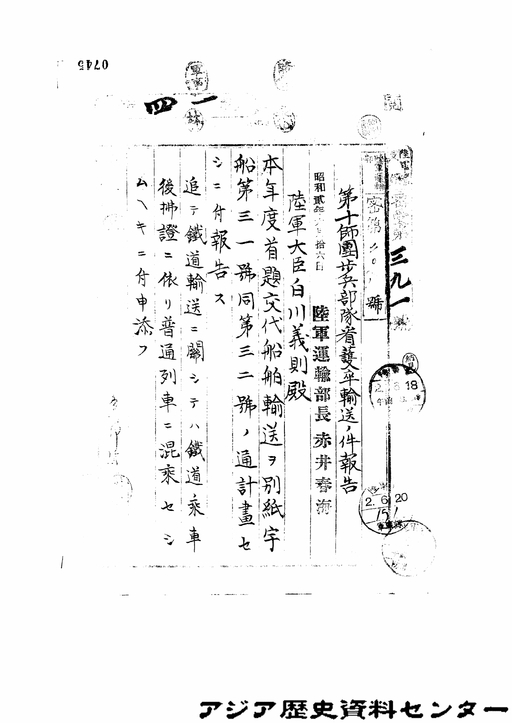 0745
四一
三九一
號
第十師團歩兵部隊看護卒輸送ノ件報告
昭和貳年 拾六日
陸軍運輸部長 赤井春海
陸軍大臣白川義則殿
本年度首題交代船舶輸送ヲ別紙宇
船第三一號同第三二號ノ通計畫セ
シニ付報告ス
追テ鐵道輸送ニ關シテハ鐵道乘車
後拂證ニ依リ普通列車ニ混乘セシ
ムヘキニ付申添フ
2.6.18
2.6.20
アジア歴史資料センター